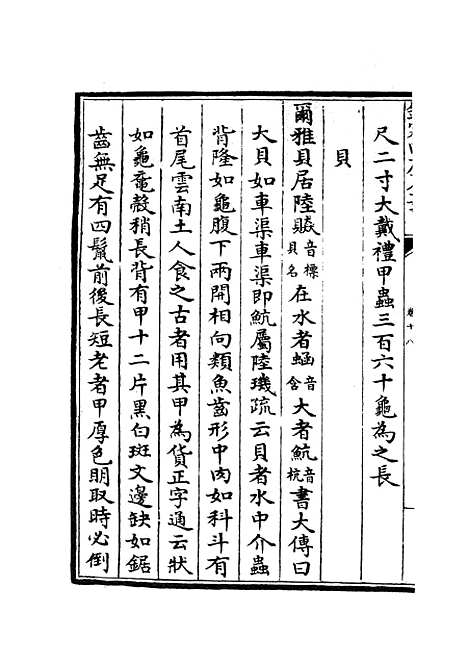 尺二寸大戴禮甲蟲三百六十龜為之長
貝
爾雅貝居陸贆音標貝名在水者蝐音含大者魧音杭書大傳曰
大貝如車渠車渠即魧屬陸璣疏云貝者水中介蟲
背隆如龜腹下兩開相向類魚齒形中肉如科斗有
首尾雲南土人食之古者用其甲為貨正字通云狀
如龜鼋殼稍長背有甲十二片黑白斑文邊缺如鋸
齒無足有四鬛前後長短老者甲厚色明取時必倒